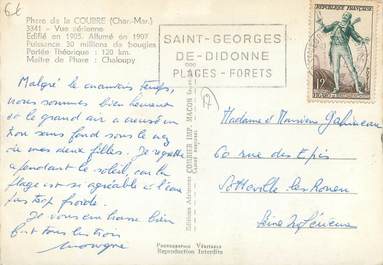 Phare de la COUBRE (Char.-Mar.)
3341 - Vue aérienne
Edifié en 1905. Allumé en 1997
Puissance 20 millions de bougies
Portée Théorique : 60 km.
Maître de Phare : Chaloupy
SAINT-GEORGES
DE-DIDONNE
PLAGES - FORETS
REPUBLIQUE FRANÇAISE
12F
17
Malgré le mauvais temps,
nous sommes bien heureux
et le grand air a creusé un
trou sans fond sous le nez
de mes deux filles. Je regrette
cependant le soleil, car la
plage est si agréable et l'eau
pas trop froide.
Je vous embrasse bien
fort tous les trois
Monique
Editions Aériennes COMBIER IMP. MACON
Madame et Monsieur Gabineau
60 rue des Epis
Sotteville les Rouen
Seine Inférieure
Photographie Véritable
Reproduction Interdite